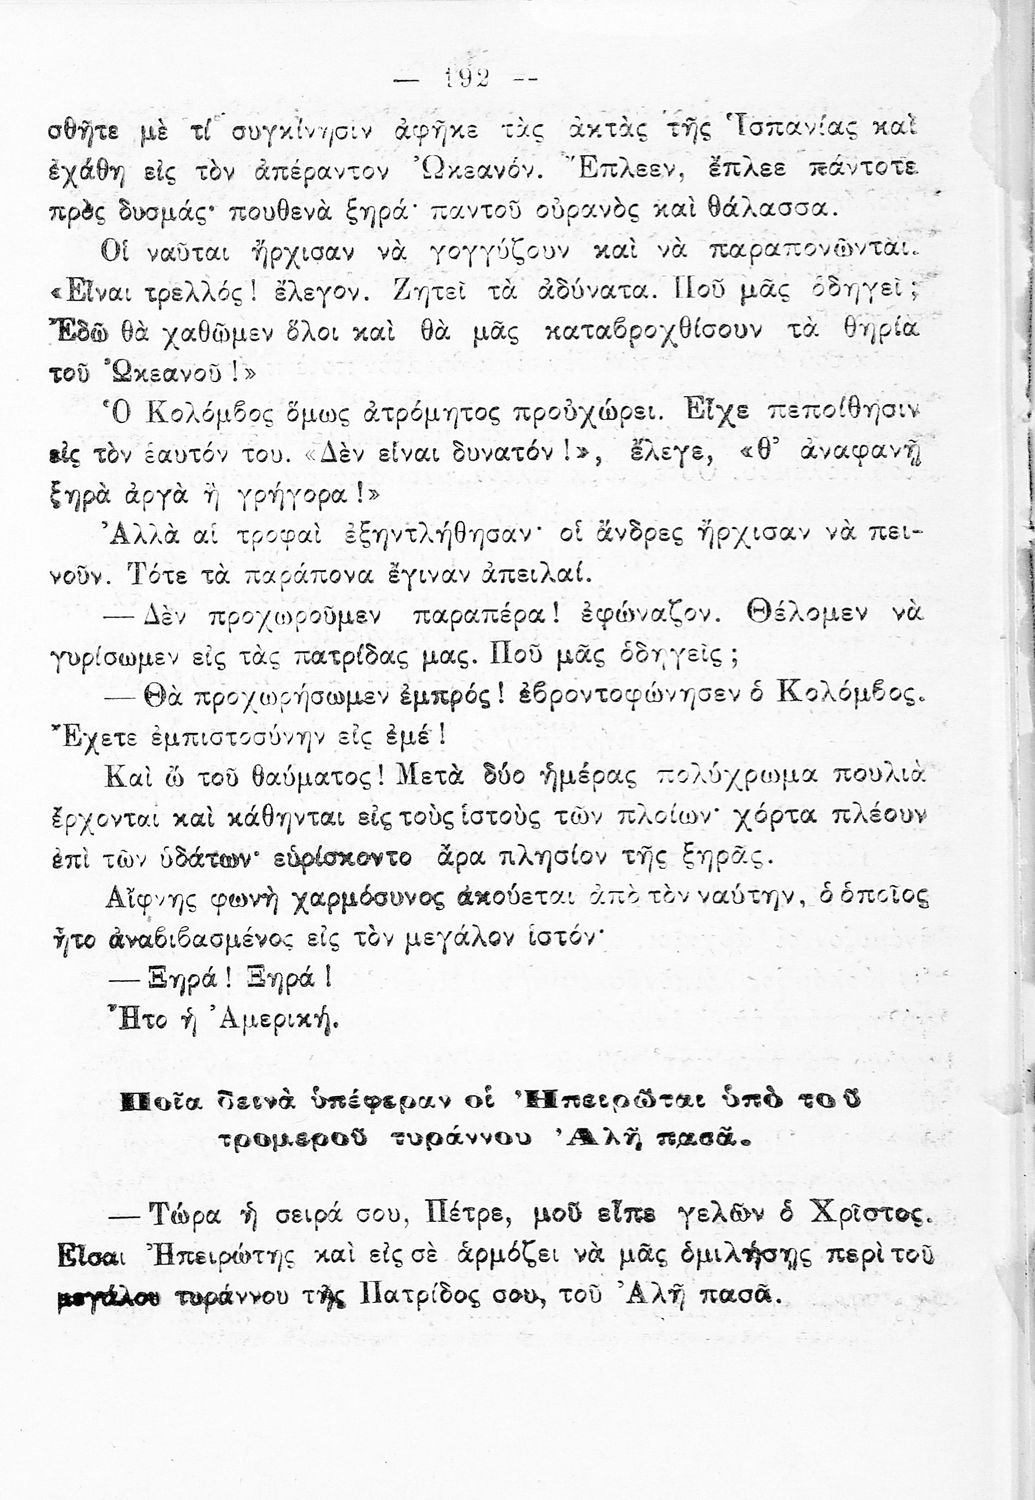 — 192 —
σθῆτε μὲ τί συγκίνησιν ἀφῆκε τὰς ἀκτὰς τῆς Ἱσπανίας καὶ
ἐχάθη εἰς τὸν ἀπέραντον Ὠκεανόν. Ἔπλεεν, ἔπλεε πάντοτε
πρὸς δυσμάς· πουθενὰ ξηρά· παντοῦ οὐρανὸς καὶ θάλασσα.
Οἱ ναῦται ἤρχισαν νὰ γογγύζουν καὶ νὰ παραπονῶνται.
«Εἶναι τρελλός! ἔλεγον. Ζητεῖ τὰ ἀδύνατα. Ποῦ μᾶς ὁδηγεῖ;
Ἐδῶ θὰ χαθῶμεν ὅλοι καὶ θὰ μᾶς καταβροχθίσουν τὰ θηρία
τοῦ Ὠκεανοῦ!»
Ὁ Κολόμβος ὅμως ἀτρόμητος προὐχώρει. Εἶχε πεποίθησιν
εἰς τὸν ἑαυτόν του. «Δὲν εἶναι δυνατόν!», ἔλεγε, «θ' ἀναφανῇ
ξηρὰ ἀργὰ ἢ γρήγορα!»
Ἀλλὰ αἱ τροφαὶ ἐξηντλήθησαν· οἱ ἄνδρες ἤρχισαν νὰ πει-
νοῦν. Τότε τὰ παράπονα ἔγιναν ἀπειλαί.
— Δὲν προχωροῦμεν παραπέρα! ἐφώναζον. Θέλομεν νὰ
γυρίσωμεν εἰς τὰς πατρίδας μας. Ποῦ μᾶς ὁδηγεῖς;
— Θὰ προχωρήσωμεν ἐμπρός! ἐβροντοφώνησεν ὁ Κολόμβος.
Ἔχετε ἐμπιστοσύνην εἰς ἐμέ!
Καὶ ὢ τοῦ θαύματος! Μετὰ δύο ἡμέρας πολύχρωμα πουλιὰ
ἔρχονται καὶ κάθηνται εἰς τοὺς ἱστοὺς τῶν πλοίων· χόρτα πλέουν
ἐπὶ τῶν ὑδάτων· εὑρίσκοντο ἄρα πλησίον τῆς ξηρᾶς.
Αἴφνης φωνὴ χαρμόσυνος ἀκούεται ἀπὸ τὸν ναύτην, ὁ ὁποῖος
ἦτο ἀναβιβασμένος εἰς τὸν μεγάλον ἱστόν·
— Ξηρά! Ξηρά!
Ἦτο ἡ Ἀμερική.
Ποῖα δεινὰ ὑπέφεραν οἱ Ἠπειρῶται ὑπὸ τοῦ
τρομεροῦ τυράννου Ἀλῆ πασᾶ.
— Τώρα ἡ σειρά σου, Πέτρε, μοῦ εἶπε γελῶν ὁ Χρῖστος.
Εἶσαι Ἠπειρώτης καὶ εἰς σὲ ἁρμόζει νὰ μᾶς ὁμιλήσῃς περὶ τοῦ
μεγάλου τυράννου τῆς Πατρίδος σου, τοῦ Ἀλῆ πασᾶ.